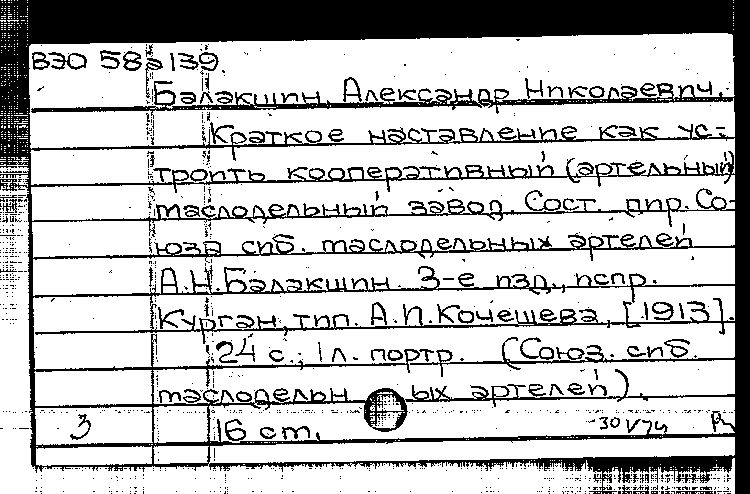 ВЭО 58а139.
Балакшин, Александр Николаевич.
Краткое наставление как ус-
троить кооперативный (артельный)
маслодельный завод. Сост. дир. Со-
юза сиб. маслодельных артелей
А.Н. Балакшин. 3-е изд., испр.
Курган, тип. А.И. Кочешева, [1913].
24 с.; 1 л. портр. (Союз. сиб.
маслодельных артелей).
3 16 cm. 30 V 74